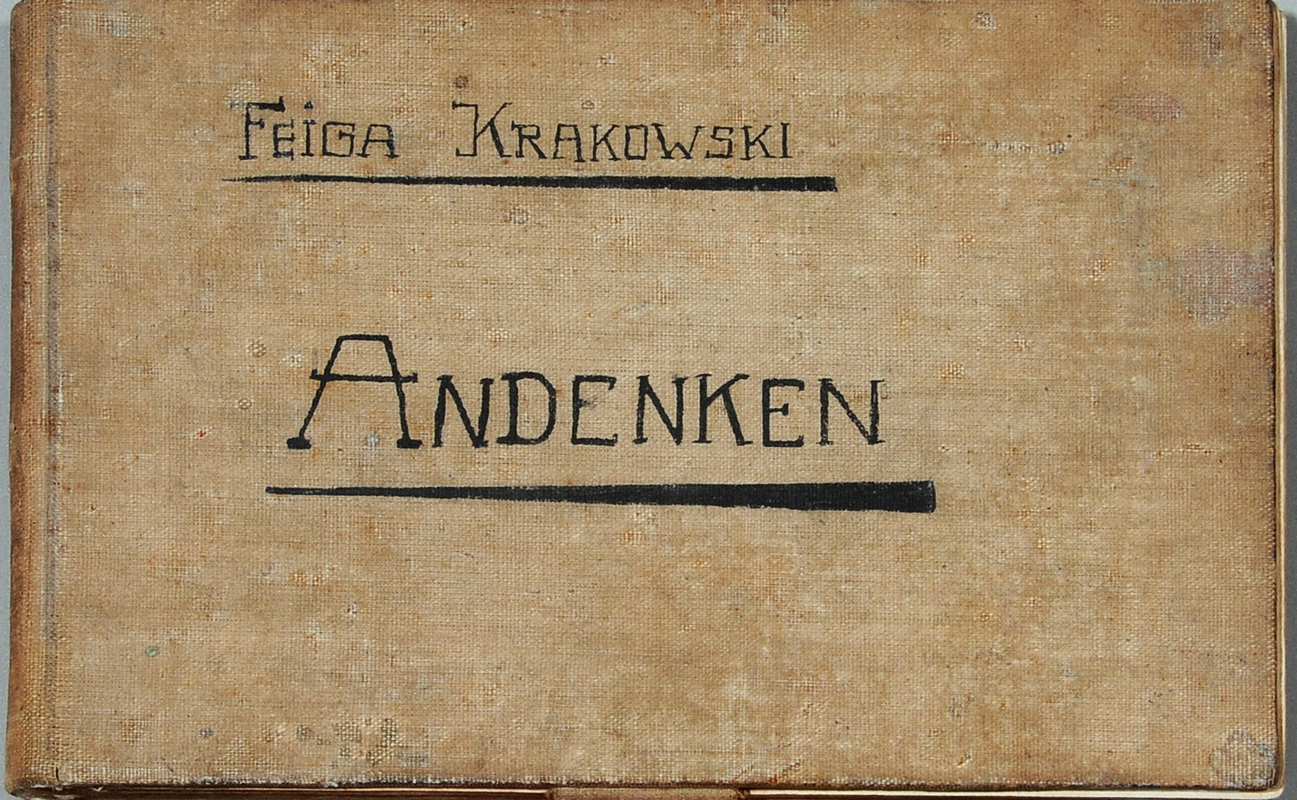 FEIGA KRAKOWSKI
ANDENKEN